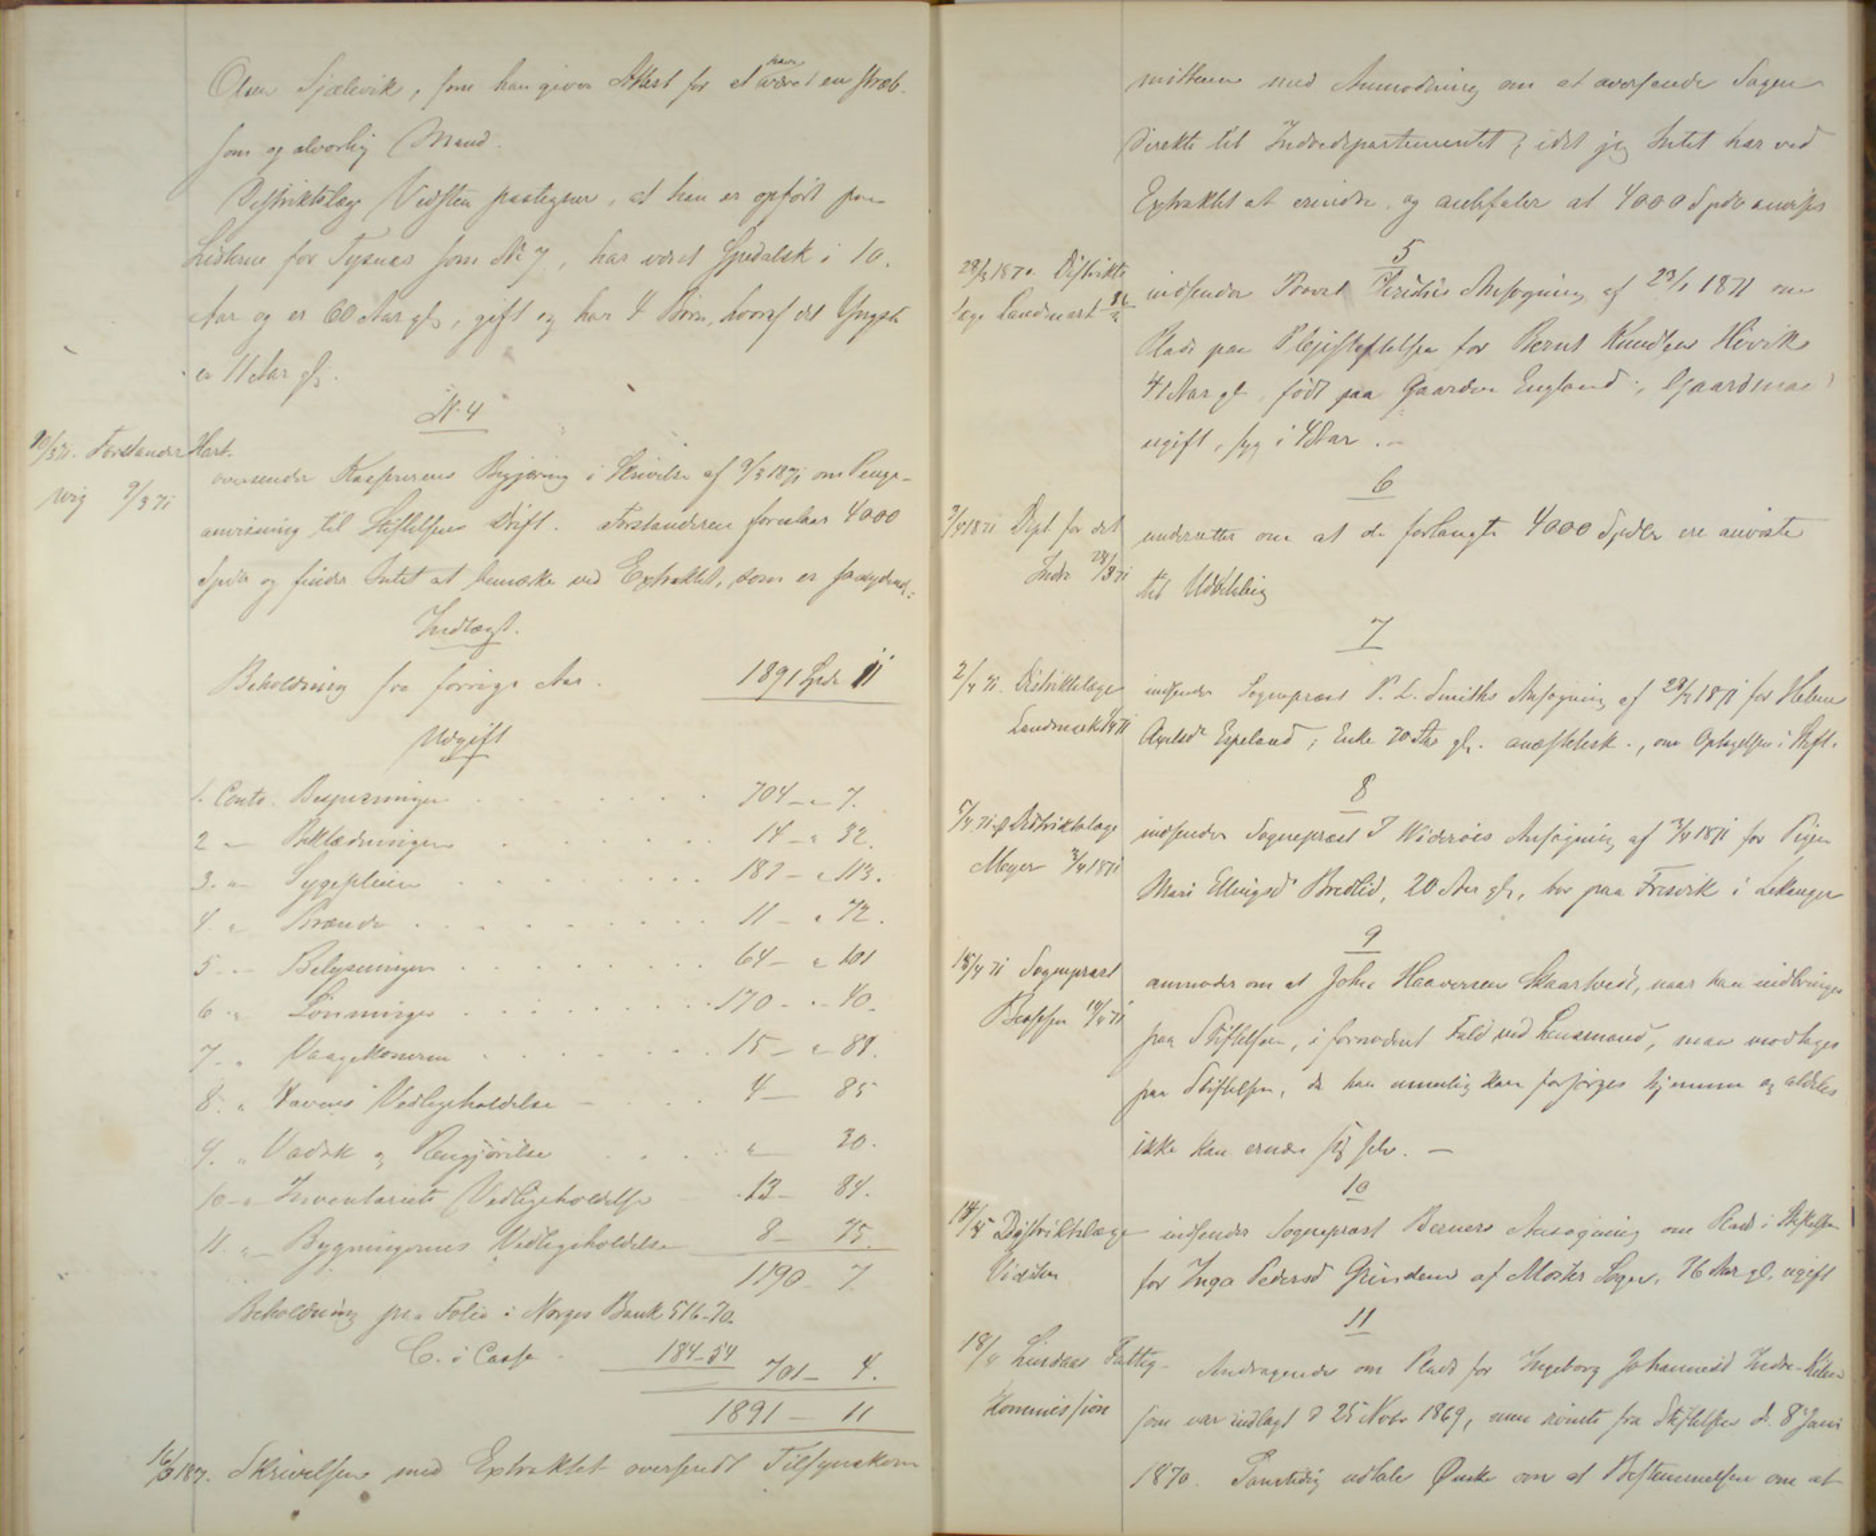 Olsen Sjælevik, som han giver Attest for at have været en stræb-
som og alvorlig Mand.
Distriktslæge Vidsten paategner, at han er opført paa
Listerne for Tysnæs som No 7, har været Spedalsk i 10
Aar og er 60 Aar gl, gift og har 4 Børn, hvoraf det Yngste
er 11 Aar gl.
N. 4
10/3 71. Forstander Hart-
wig 9/3 71
oversender Kasserens Begjæring i Skrivelse af 9/3 1871 om Penge-
anvisning til Stiftelsens Drift. Forstanderen foreslaar 4000
Spdr og finder Intet at bemærke ved Extraktet, som er saalydende:
Indtægt.
Beholdning fra forrige Aar. 1891 Spdr 11
Udgift
1. Conto. Bespisningen 704 - " 7.
2 - Beklædningen 14 - " 32.
3. " Sygepleien 187 - " 113.
4. " Brænde 11 - " 72.
5 - Belysningen 64 - " 101
6 " Lønninger 170 - " 40.
7 - " Vaagekonerne 15 - " 89.
8. " Havens Vedligeholdelse - 4 - 85
9. " Vadsk og Rengjørelse " 30.
10 - " Inventariets Vedligeholdelse 13 - 84.
11. " Bygningernes Vedligeholdelse 8 - 75.
1190 7.
Beholdning paa Folio i Norges Bank 516-70.
C. i Casse 184-54
701 - 4.
1891 - 11
16/3 187. Skrivelsen med Extraktet oversendt Tilsynskom
mitteen med Anmodning om at oversende Sagen
direkte til Indredepartementet, idet jeg Intet har ved
Extraktet at erindre og anbefaler at 4000 Spdr anvises
5
29/3 1871 Distrikts
læge Landmark
indsender Provst Ansøgning af 23/1 1871 om
Plads paa Plejestiftelsen for Bernt Knudsen Hövik
41 Aar gl, født paa Gaarden England, Gaardmand
ugift, syg i 4 Aar.
6
3/4 1871 Dept for det
Indre 28/3 71
underretter om at de forlangte 4000 Spdlr ere anviste
til Udbetaling
7
2/4 71. Distriktslæge
Landmark 1/4 71
indsender Sogneprest P. L. Smiths Ansøgning af 28/3 1871 for Helene
Axelsdr Espeland, Enke 70 Aar gl. anæsthetisk, om Optagelse i Stift.
8
5/4 71 Distriktslæge
Meyer 3/4 1871
indsender Sogneprest J Widerøes Ansøgning af 3/4 1871 for Pigen
Mari Ellingsd Bredlid, 20 Aar gl, bor paa Fresvik i Lekanger
9
15/4 71 Sogneprest
14/4 71
anmoder om at John Haaversen Skaartvedt, naar han indbringes
paa Stiftelsen, i fornødent Fald ved Lensmand, maa modtages
paa Stiftelsen, da han umulig kan forsørges hjemme og aldeles
ikke kan ernære sig selv. —
10
Distriktslæge
Vidsten
indsender Sogneprest Berners Ansøgning om Plads i Stiftelsen
for Inga Pedersd Grinden af Moster Sogn, 76 Aar gl, ugift
11
18/4 Lindaas Fattig-
Kommission
Andragende om Plads for Ingeborg Johannesd Indre-Kilen
som var indlagt d 25 Novr 1869, men rømte fra Stiftelsen d. 8 Juni
1870. Samtidig udtales Ønske om at Bestemmelsen om at